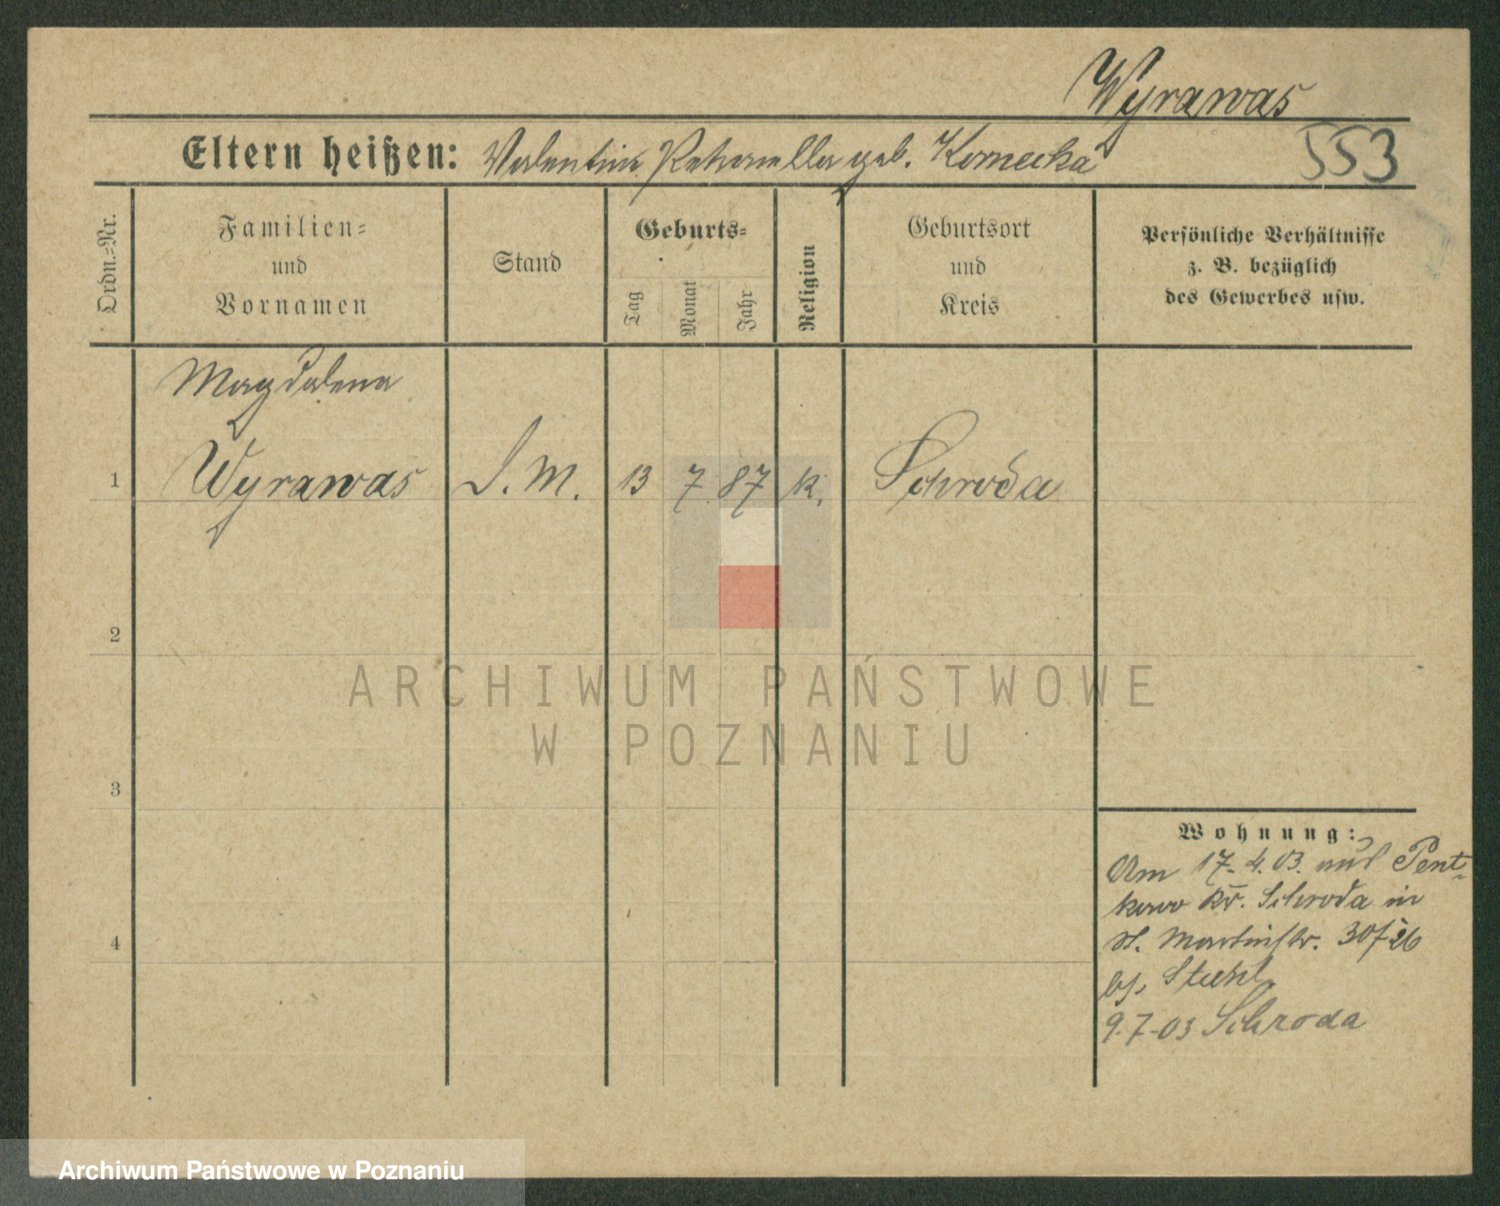 Wyrawas
553
Eltern heißen: Valentin Petronella geb. Komecka
Ordn.=Nr.
Familien=
und
Vornamen
Stand
Geburts=
Tag
Monat
Jahr
Religion
Geburtsort
und
Kreis
Persönliche Verhältnisse
z. B. bezüglich
des Gewerbes usw.
Magdalena
1 Wyrawas D. M. 13 7 87 k. Schroda
2
3
4
Wohnung:
Am 17.4.03. aus Pent-
kowo Kr. Schroda in
St. Martinstr. 30/26
bei
9.7.03 Schroda
ARCHIWUM PAŃSTWOWE
W POZNANIU
Archiwum Państwowe w Poznaniu